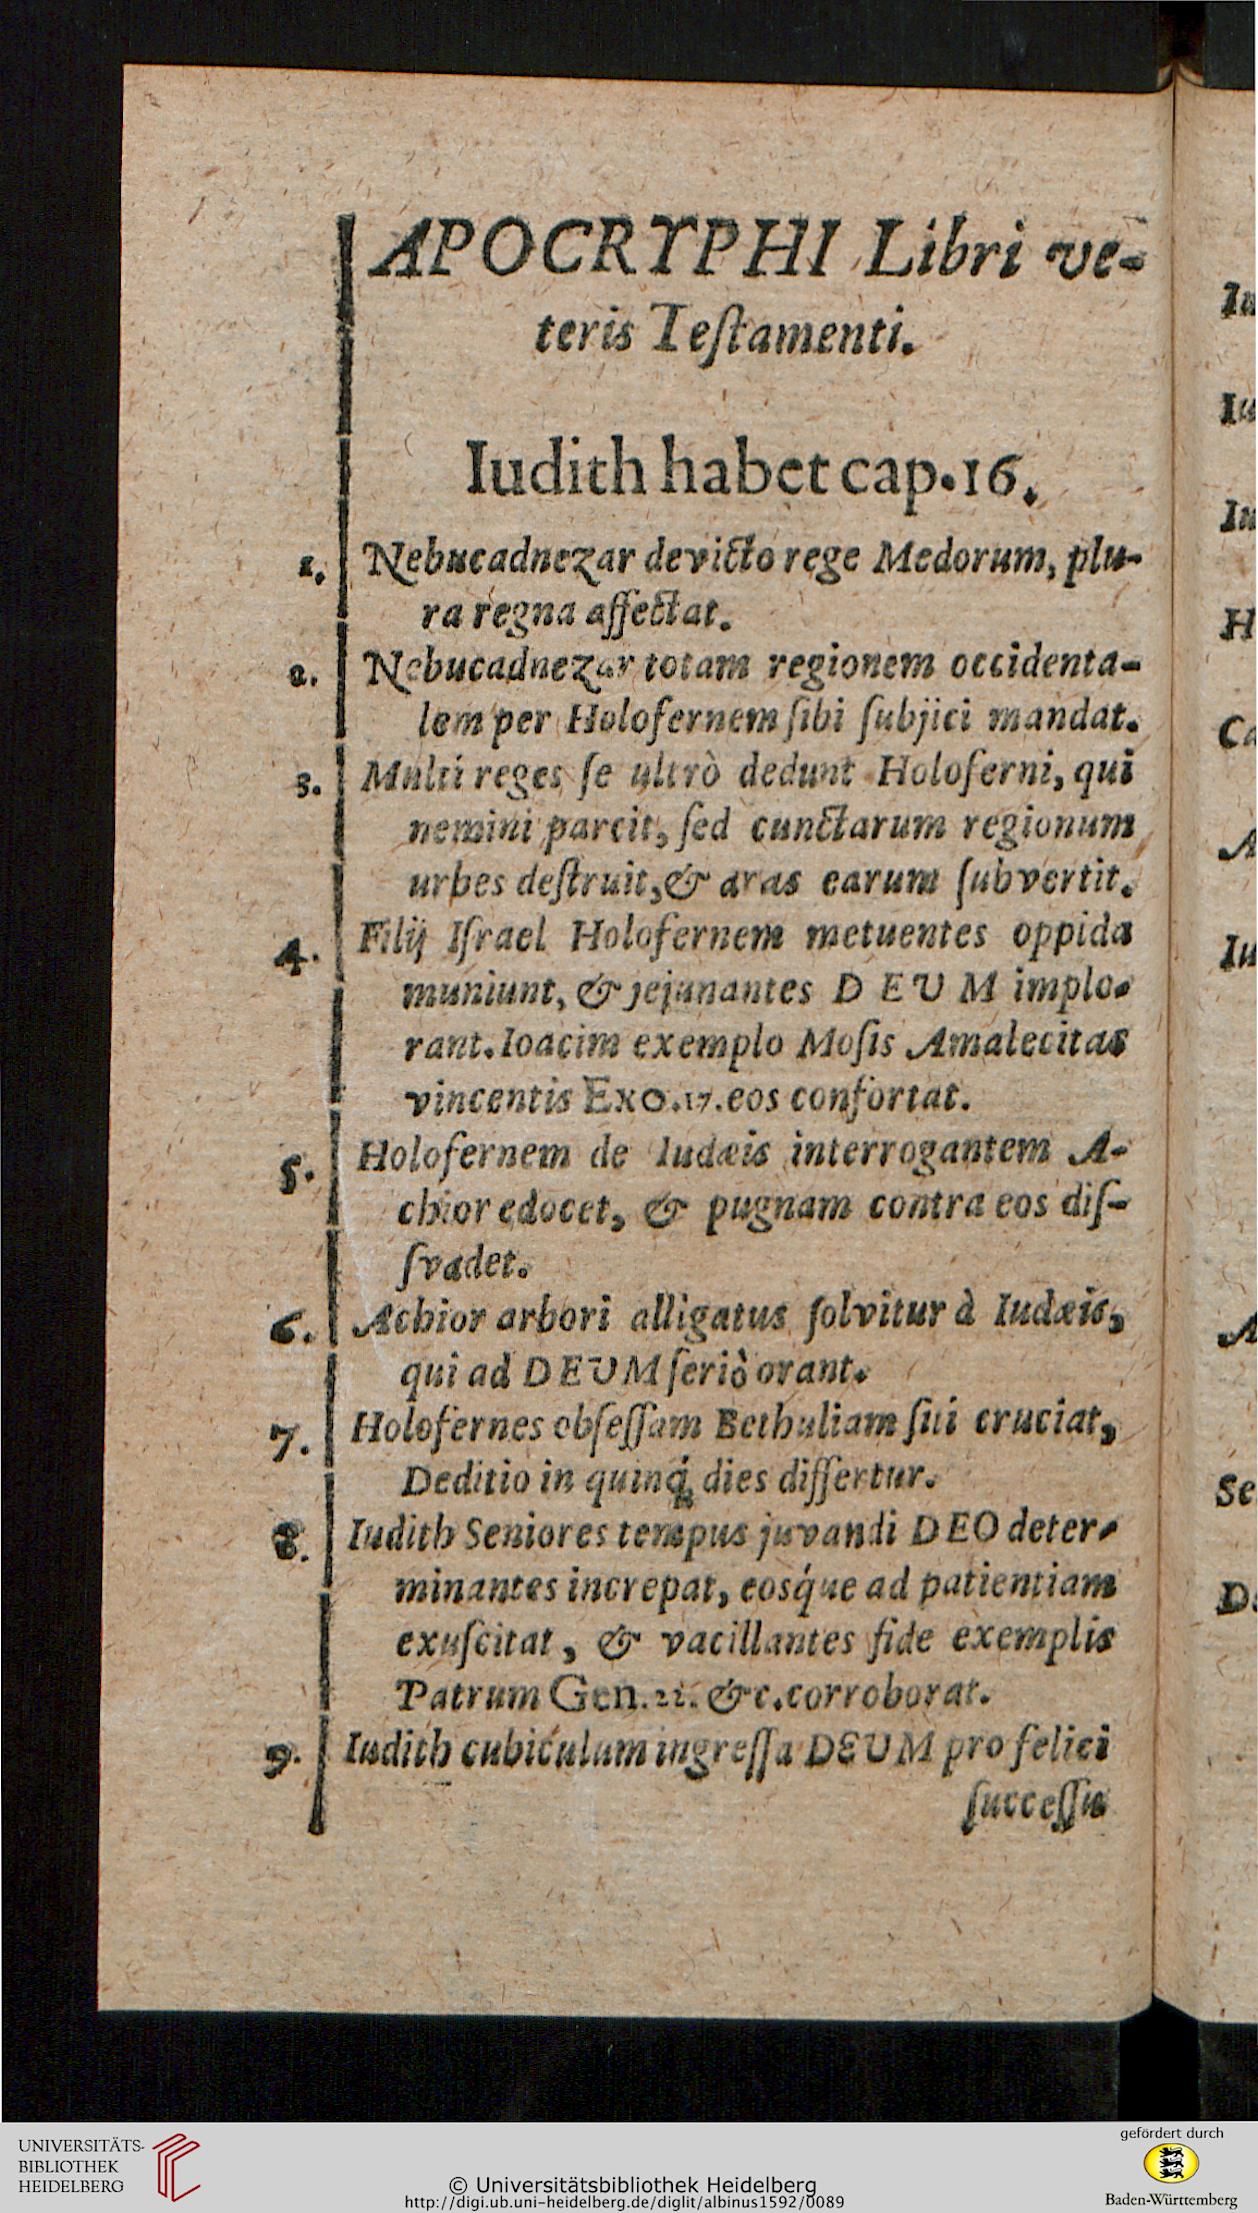 APOCRYPHI Libri ve-
teris Teſtamenti.
Iudith habet cap. 16.
1. Nebucadnezar devicto rege Medorum, plu-
ra regna affectat.
2. Nebucadnezar totam regionem occidenta-
lem per Holofernem ſibi ſubjici mandat.
3. Multi reges ſe ultrò dedunt Holoferni, qui
nemini parcit, ſed cunctarum regionum
urbes deſtruit, & aras earum ſubvertit.
4. Filij Iſrael Holofernem metuentes oppida
muniunt, & jejunantes DEUM implo-
rant. Ioacim exemplo Moſis Amalecitas
vincentis Exo. 17. eos confortat.
5. Holofernem de Iudæis interrogantem A-
chior edocet, & pugnam contra eos diſ-
ſvadet.
6. Achior arbori alligatus ſolvitur à Iudæis,
qui ad DEUM ſeriò orant.
7. Holofernes obſeſſam Bethuliam ſiti cruciat,
Deditio in quinq́ dies differtur.
8. Iudith Seniores tempus juvandi DEO deter-
minantes increpat, eosq́ue ad patientiam
exuſcitat, & vacillantes fide exemplis
Patrum Gen. 22. &c. corroborat.
9. Iudith cubiculum ingreſſa DEUM pro felici
ſucceſſu
Iu
Iu
Iu
H
Ca
A
Iu
A
Se
D
UNIVERSITÄTS-
BIBLIOTHEK
HEIDELBERG
© Universitätsbibliothek Heidelberg
http://digi.ub.uni-heidelberg.de/diglit/albinus1592/0089
gefördert durch
Baden-Württemberg